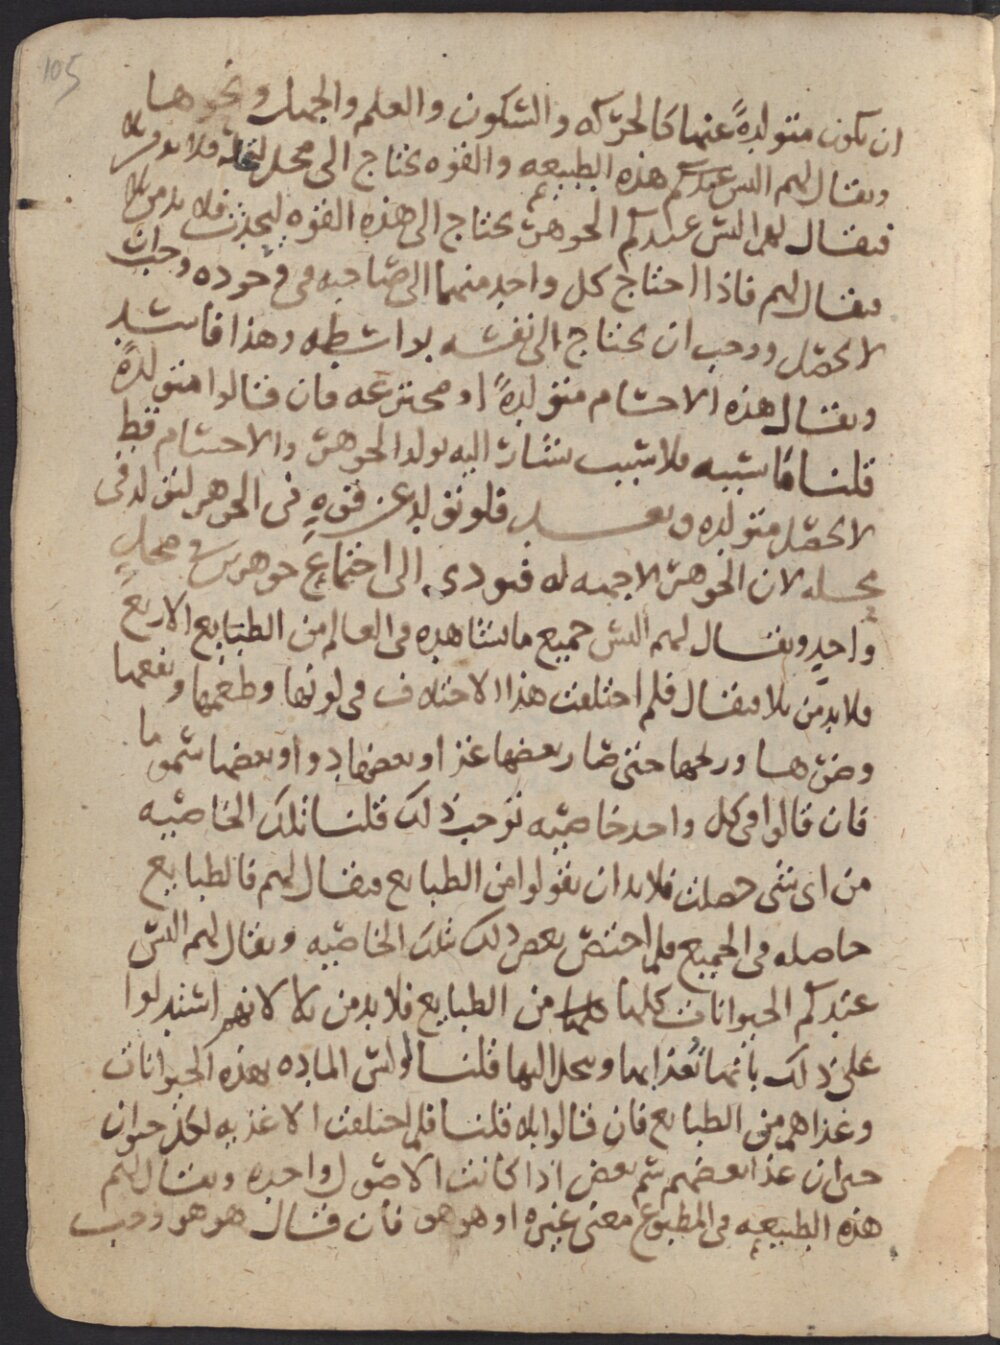 105
ان تكون متولدةً عنها كالحركه والسكون والعلم والجهل ونحوها
ويقال لهم اليس عندكم هذه الطبيعه والقوه تحتاج الى محل لتحله فلا بد من بلا
فيقال لهم اليس عندكم الجوهر يحتاج الى هذه القوه ليحدث فلا بد من بلا
فيقال لهم فاذا احتاج كل واحد منهما الى صاحبه في وجوده وجب ان
لا يحصل ووجب ان يحتاج الى نفسه بواسطه وهذا فاسد
ويقال هذه الاجسام متولدةً او مخترعه فان قالوا متولدةً
قلنا فما سببه فلا سبب يشار اليه يولد الجوهر والاجسام قط
لا يحصل متولده وبعد فلو تولد عن قوهٍ في الجوهر لتولد في
محله لان الجوهر لا جهه له فيودي الى اجتماع جوهرين في محلٍ
واحدٍ ويقال لهم اليس جميع ما نشاهده في العالم من الطبايع الاربع
فلا بد من بلا فيقال فلم اختلفت هذا الاختلاف في لونها وطعمها ونفعها
وضرها وريحها حتى صار بعضها غذا وبعضها دوا وبعضها سموما
فان قالوا في كل واحد خاصيه توجب ذلك قلنا تلك الخاصيه
من اي شي حصلت فلا بد ان يقولوا من الطبايع فيقال لهم فالطبايع
حاصله في الجميع فلم اختص بعض ذلك بتلك الخاصيه ويقال لهم اليس
عندكم الحيوانات كلها من الطبايع فلا بد من بلا لانهم استدلوا
على ذلك بانها تغذا بها وينحل اليها قلنا اوليس الماده بهذه الحيوانات
وغذاهم من الطبايع فان قالوا بلا قلنا فلم اختلفت الاغذيه لكل حيوان
حتى ان غذا بعضهم سم بعض اذا كانت الاصول واحده ويقال لهم
هذه الطبيعه في المطبوع معنى غيره او هو هو فان قال هو هو وجب